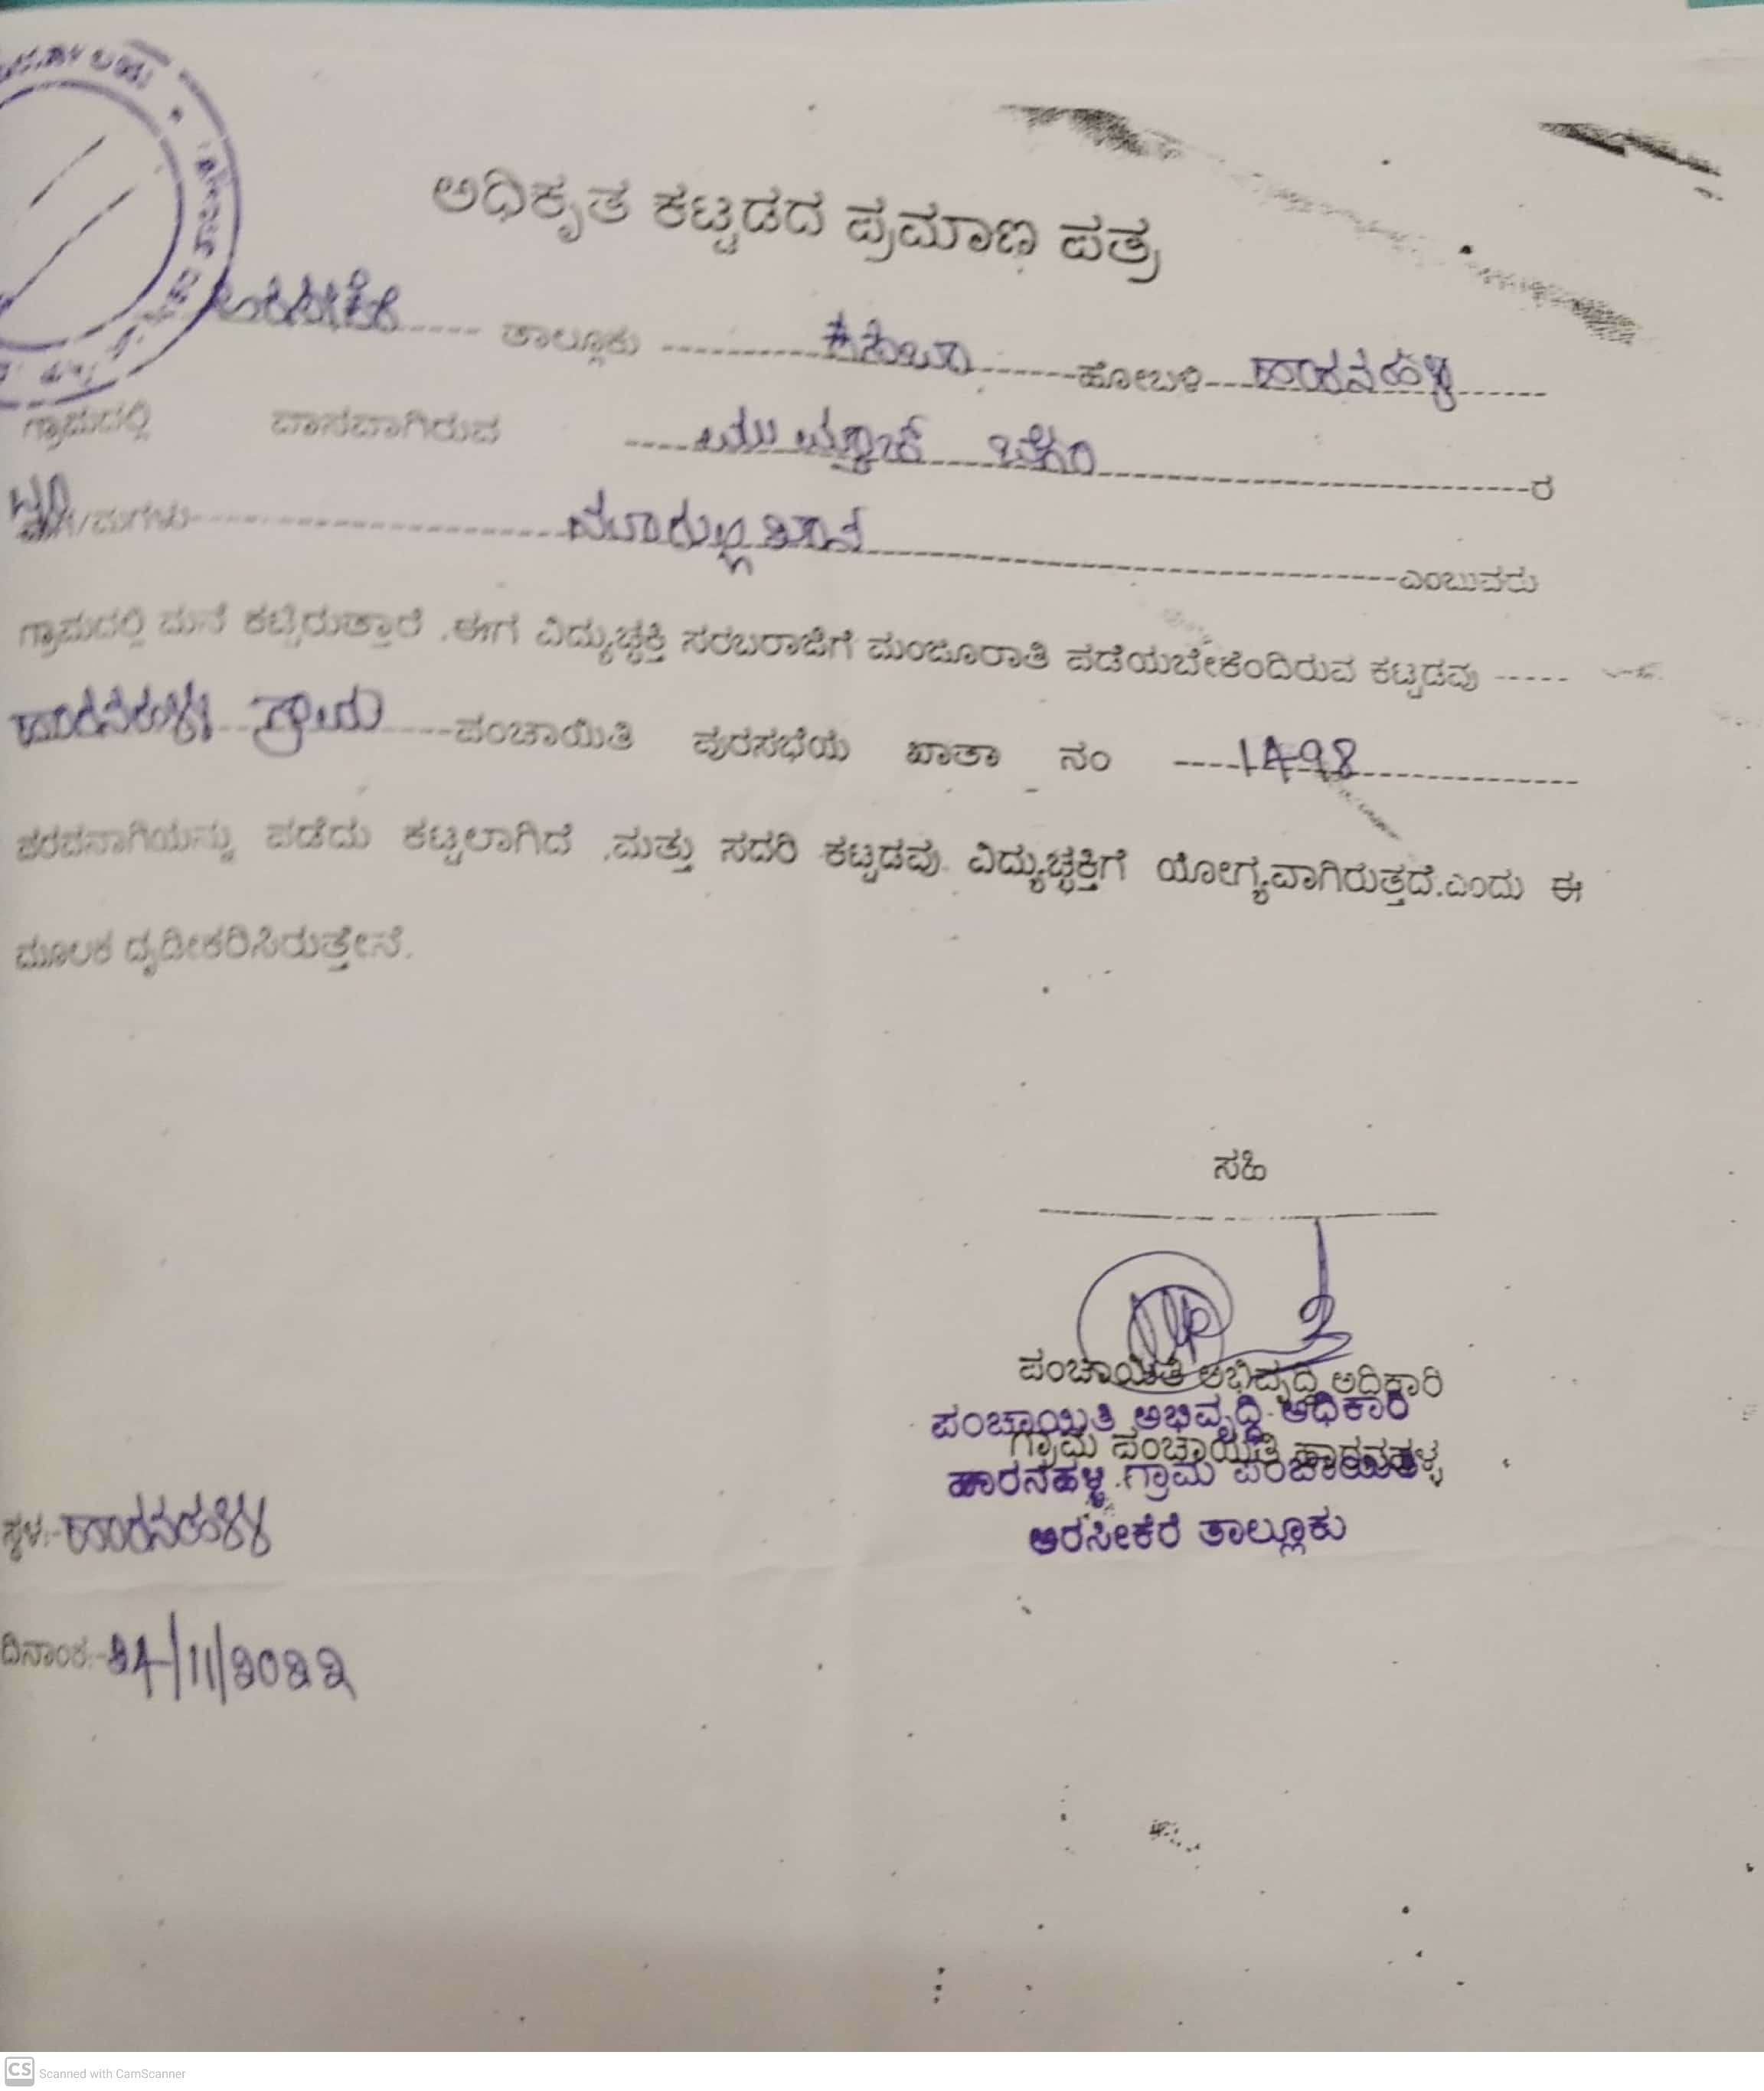 ಅಧಿಕೃತ ಕಟ್ಟಡದ ಪ್ರಮಾಣ ಪತ್ರ
ಅರಸೀಕೆರೆ ----- ತಾಲ್ಲೂಕು ---------- ಕಸಬಾ ------ ಹೋಬಳಿ --- ಹಾರನಹಳ್ಳಿ ------
ಗ್ರಾಮದಲ್ಲಿ ವಾಸವಾಗಿರುವ ---- ಮುಮ್ತಾಜ್ ಬೇಗಂ ---------- ರ
/ಮಗಳು ---------- ---------- ಎಂಬುವರು
ಗ್ರಾಮದಲ್ಲಿ ಮನೆ ಕಟ್ಟಿರುತ್ತಾರೆ .ಈಗ ವಿದ್ಯುಚ್ಛಕ್ತಿ ಸರಬರಾಜಿಗೆ ಮಂಜೂರಾತಿ ಪಡೆಯಬೇಕೆಂದಿರುವ ಕಟ್ಟಡವು -----
ಹಾರನಹಳ್ಳಿ ಗ್ರಾಮ ---- ಪಂಚಾಯಿತಿ ಪುರಸಭೆಯ ಖಾತಾ ನಂ ---- 1498 ----------
ಪರವನಾಗಿಯನ್ನು ಪಡೆದು ಕಟ್ಟಲಾಗಿದೆ .ಮತ್ತು ಸದರಿ ಕಟ್ಟಡವು ವಿದ್ಯುಚ್ಛಕ್ತಿಗೆ ಯೋಗ್ಯವಾಗಿರುತ್ತದೆ.ಎಂದು ಈ
ಮೂಲಕ ದೃಡೀಕರಿಸಿರುತ್ತೇನೆ.
ಸಹಿ
ಪಂಚಾಯಿತಿ ಅಭಿವೃದ್ಧಿ ಅಧಿಕಾರಿ
ಪಂಚಾಯಿತಿ ಅಭಿವೃದ್ಧಿ ಅಧಿಕಾರಿ
ಗ್ರಾಮ ಪಂಚಾಯಿತಿ ಹಾರನಹಳ್ಳಿ
ಹಾರನಹಳ್ಳಿ ಗ್ರಾಮ ಪಂಚಾಯಿತಿ
ಅರಸೀಕೆರೆ ತಾಲ್ಲೂಕು
ಸ್ಥಳ:- ಹಾರನಹಳ್ಳಿ
ದಿನಾಂಕ:- 24/11/2022
CS Scanned with CamScanner